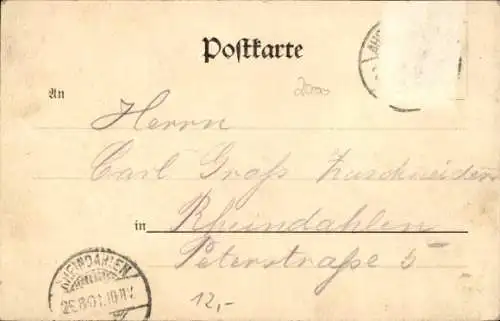 Postkarte
An
Herrn
Carl Groß Zuschneider
in Rheindahlen
Peterstraße 5
RHEINDAHLEN
26.8.01.10-11V.
12,-